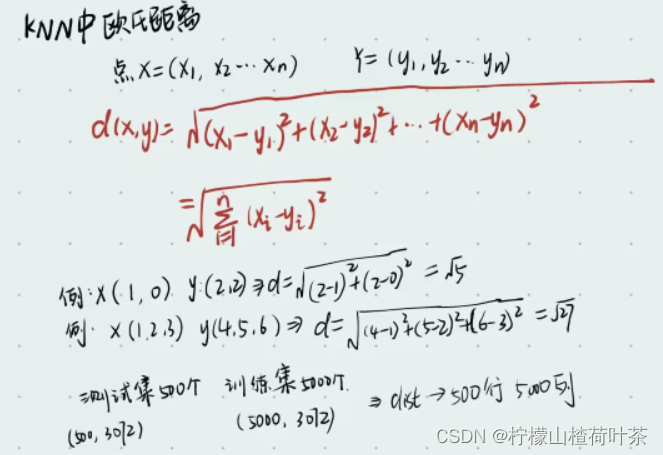 KNN中欧氏距离
点X=(x₁, x₂…xₙ) Y=(y₁, y₂…yₙ)
d(x,y)=√((x₁-y₁)²+(x₂-y₂)²+…+(xₙ-yₙ)²)
=√(∑ⁿᵢ₌₁(xᵢ-yᵢ)²)
例:X(1,0) y:(2,2)⇒d=√((2-1)²+(2-0)²)=√5
例: X(1,2,3) y(4,5,6)⇒d=√((4-1)²+(5-2)²+(6-3)²)=√27
测试集500个 训练集5000个 ⇒dist→500行 5000列
(500,3072) (5000,3072)
CSDN @柠檬山楂荷叶茶